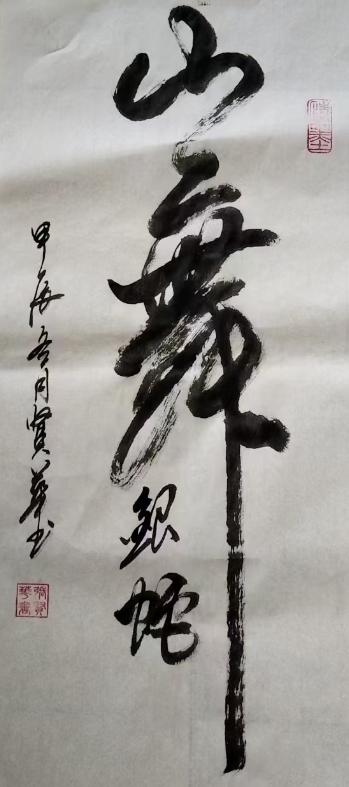 山舞銀蛇
甲辰 月賢華书